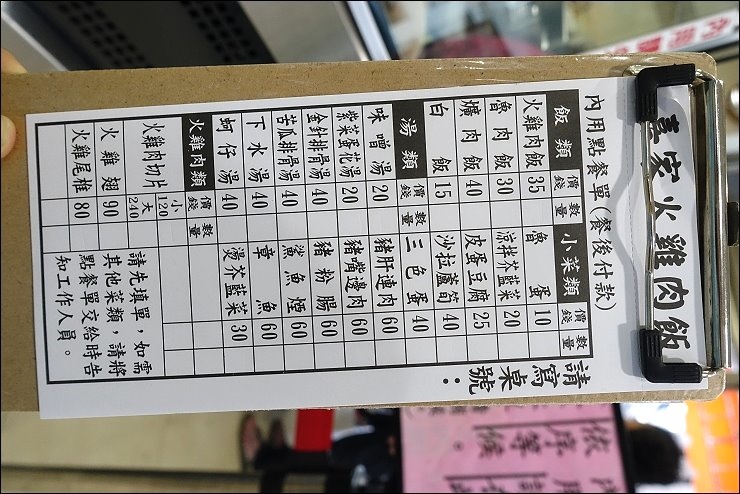 家火雞肉飯
內用點餐單(餐後付款)
請寫桌號：
飯類 價錢 數量 小菜類 價錢 數量
火雞肉飯 35 魯蛋 10
魯肉飯 30 涼拌芥藍菜 20
爌肉飯 40 皮蛋豆腐 25
白飯 15 沙拉蘆筍 40
湯類 價錢 數量 三色蛋 40
味噌湯 20 豬肝連肉 60
紫菜蛋花湯 20 豬嘴邊肉 60
金針排骨湯 40 豬粉腸 60
苦瓜排骨湯 40 鯊魚煙 60
下水湯 40 章魚 60
蚵仔湯 40 燙芥藍菜 30
火雞肉類 價錢 數量
火雞肉切片 小120 大240
火雞翅 90
火雞尾椎 80
請先填單，如需
其他菜類，請將
點餐單交給時告
知工作人員。
依序等候。